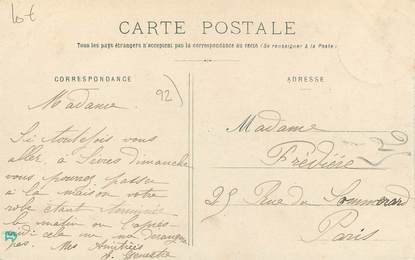 lot
CARTE POSTALE
Tous les pays étrangers n'acceptent pas la correspondance au recto (Se renseigner à la Poste)
CORRESPONDANCE
ADRESSE
92)
Madame
Si toutefois vous
aller, à Sèvres Dimanche
vous pouvez passer
à la maison votre
robe étant terminée
le matin ou l'après
midi cela ne me dérange
pas. Mes Amitiés
Madame
Frédière
25 Rue du Sommerard
Paris